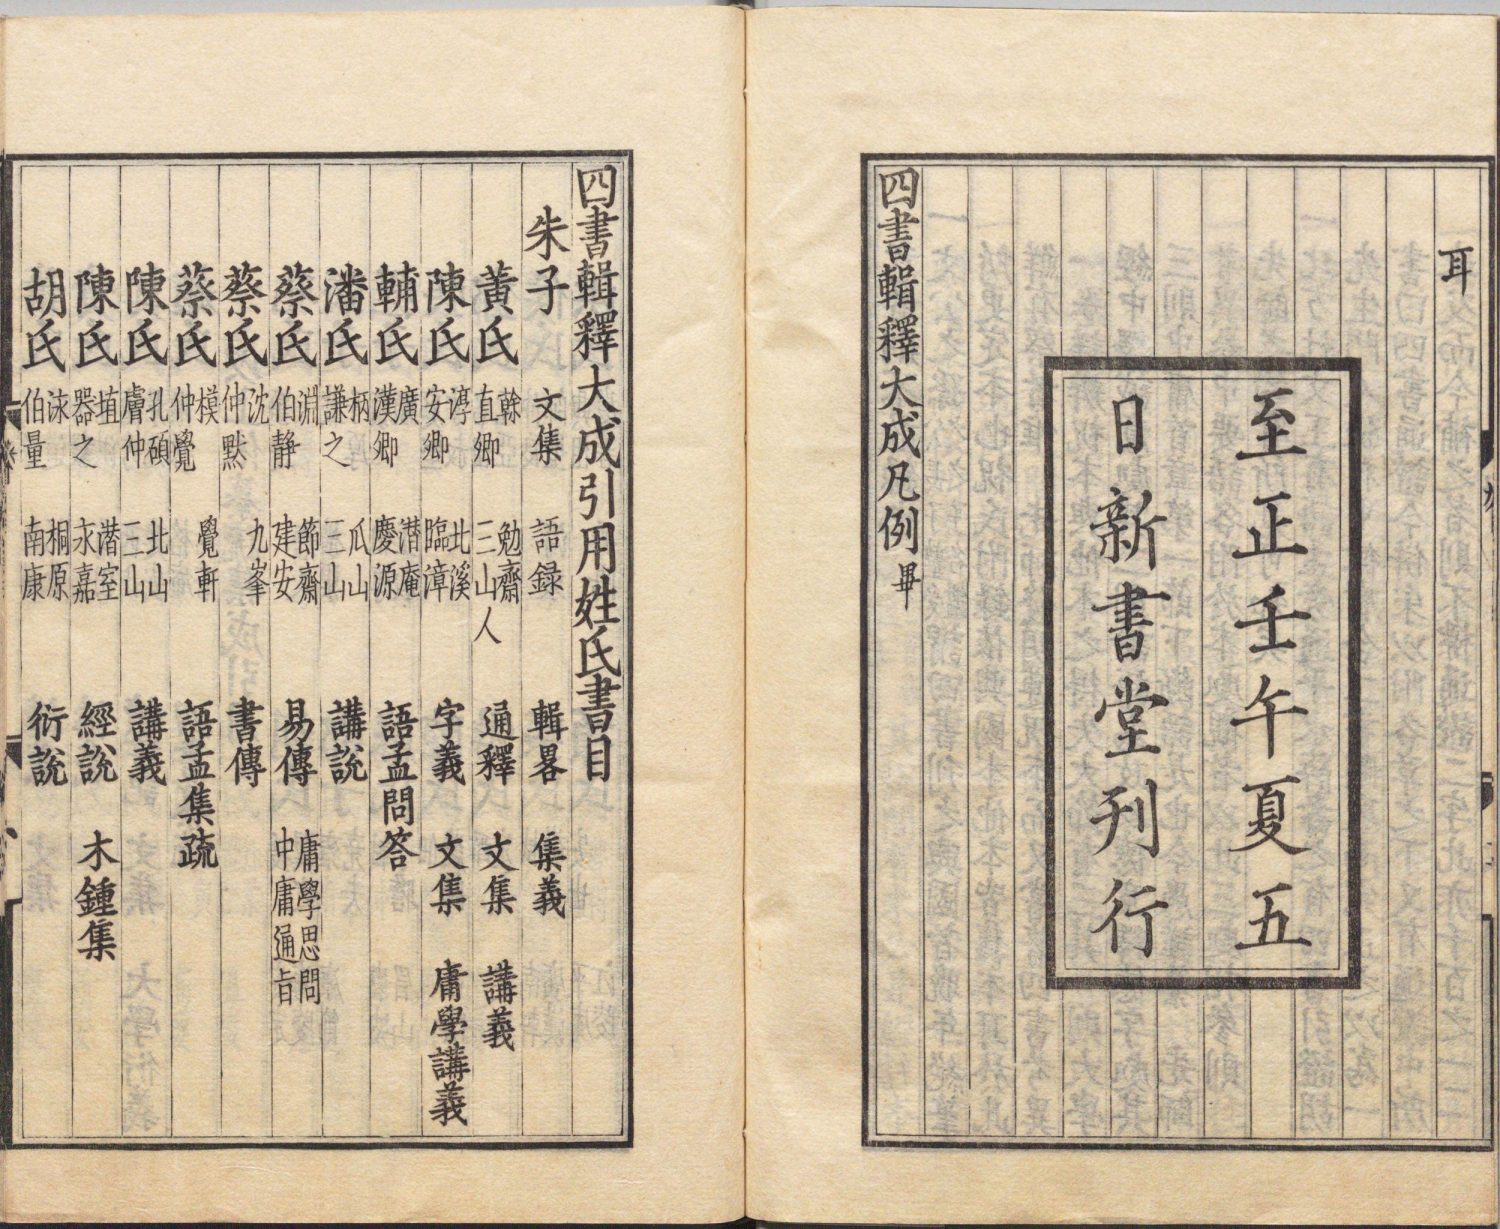 耳
至正壬午夏五
日新書堂刊行
四書輯釋大成凡例畢
四書輯釋大成引用姓氏書目
朱子 文集 語録 輯畧 集義
黃氏 榦 直卿 勉齋 三山人 通釋 文集 講義
陳氏 淳 安卿 北溪 臨漳 字義 文集 庸學講義
輔氏 廣 漢卿 潜庵 慶源 語孟問答
潘氏 柄 謙之 瓜山 三山 講說
蔡氏 淵 伯静 節齋 建安 易傳 庸學思問 中庸通旨
蔡氏 沈 仲默 九峯 書傳
蔡氏 模 仲覺 覺軒 語孟集疏
陳氏 孔碩 膚仲 北山 三山 講義
陳氏 埴 器之 潜室 永嘉 經說 木鍾集
胡氏 泳 伯量 桐原 南康 衍說